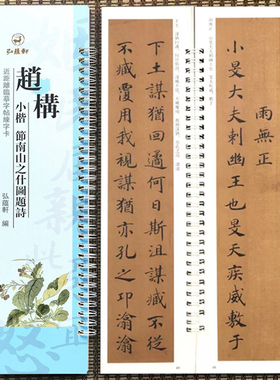 弘蘊軒
近距離臨摹字帖練字卡
趙構
小楷 節南山之什圖題詩
弘蘊軒 編
雨無正
小旻大夫刺幽王也旻天疾威敷于
下土謀猶回遹何日斯沮謀臧不從
不臧覆用我視謀猶亦孔之卭潝潝